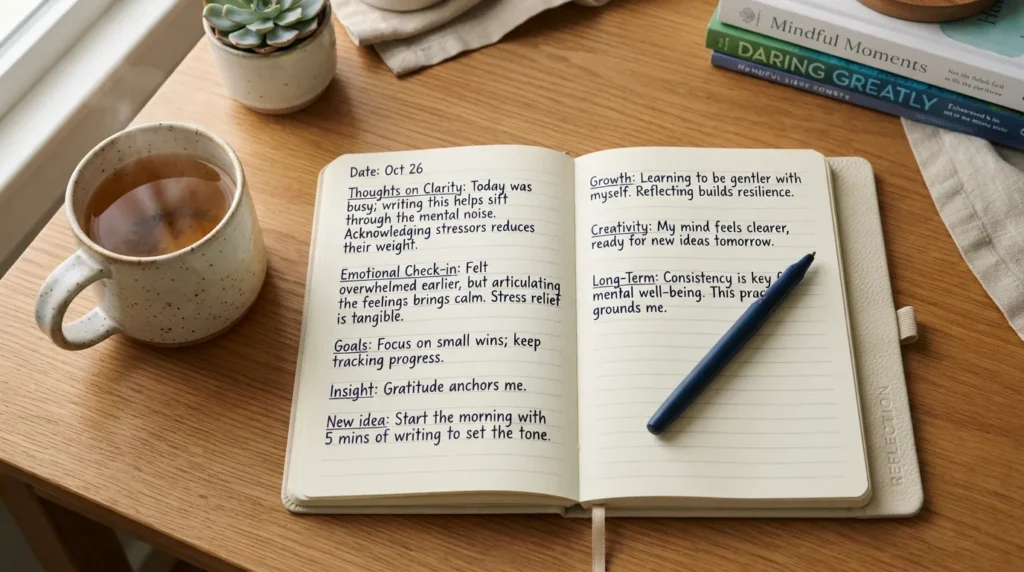 Mindful Moments
DARING GREATLY
Date: Oct 26
Thoughts on Clarity: Today was
busy; writing this helps sift
through the mental noise.
Acknowledging stressors reduces
their weight.
Emotional Check-in: Felt
overwhelmed earlier, but articulating
the feelings brings calm. Stress relief
is tangible.
Goals: Focus on small wins; keep
tracking progress.
Insight: Gratitude anchors me.
New idea: Start the morning with
5 mins of writing to set the tone.
Growth: Learning to be gentler with
myself. Reflecting builds resilience.
Creativity: My mind feels clearer,
ready for new ideas tomorrow.
Long-Term: Consistency is key
mental well-being. This
grounds me.
REFLECTION